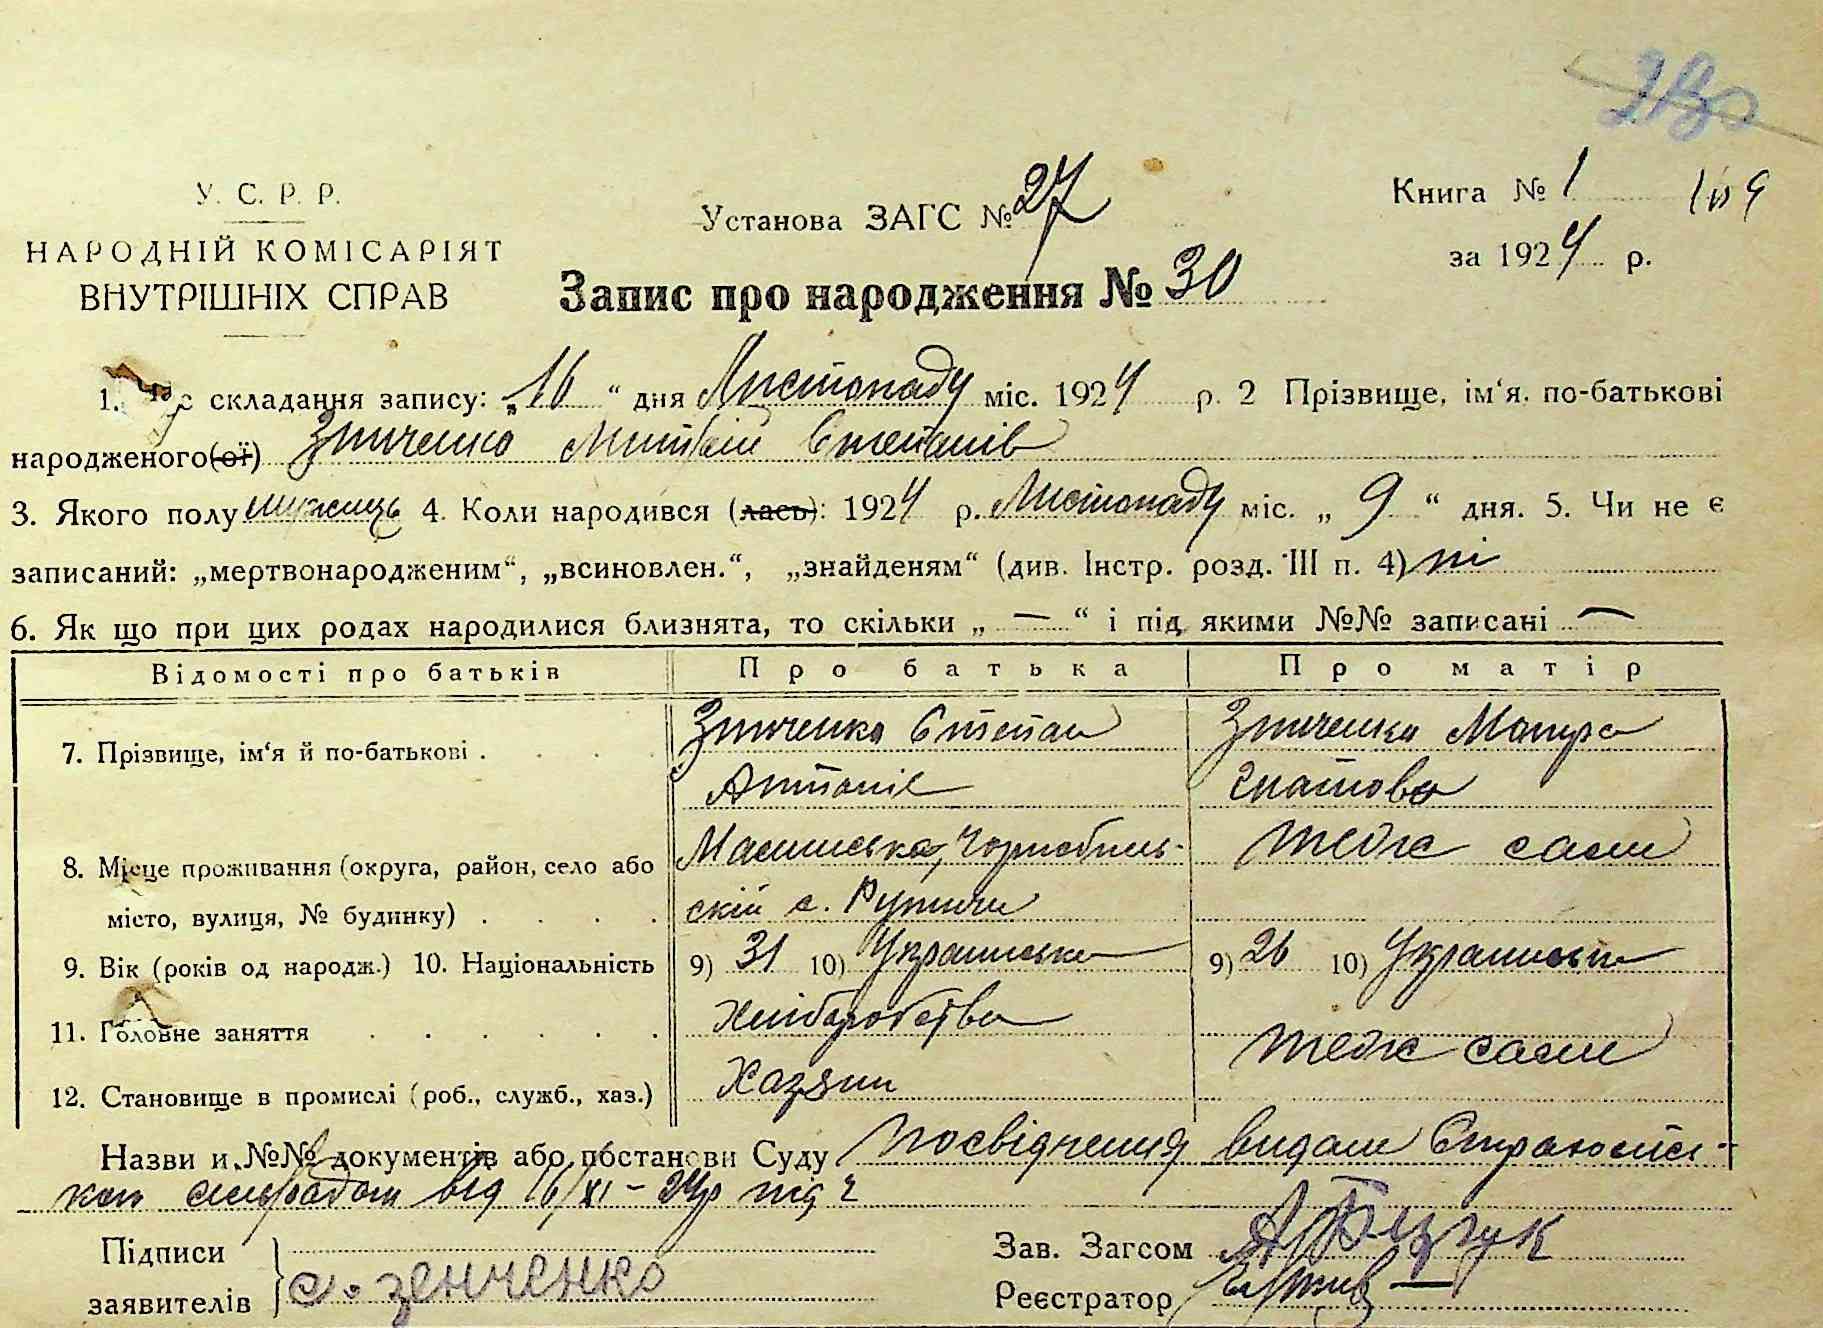 У. С. Р. Р.
НАРОДНІЙ КОМІСАРІЯТ
ВНУТРІШНІХ СПРАВ
Установа ЗАГС № 27
Книга № 1
за 1924 р.
Запис про народження № 30
1. Час складання запису: „16“ дня Листопаду міс. 1924 р. 2 Прізвище, ім‘я, по-батькові
народженого(ої) Зінченко Степанів
3. Якого полу 4. Коли народився (лась): 1924 р. Листопаду міс. „9“ дня. 5. Чи не є
записаний: „мертвонародженим“, „всиновлен.“, „знайденям“ (див. Інстр. розд. III п. 4) ні
6. Як що при цих родах народилися близнята, то скільки „—“ і під якими №№ записані —
Відомості про батьків Про батька Про матір
7. Прізвище, ім‘я й по-батькові . . . . Зінченко Степан Зінченко Мотря
Антонів Гнатова
8. Місце проживання (округа, район, село або Малинська, Чорнобиль- теж саме
місто, вулиця, № будинку) . . . . ский с.
9. Вік (років од народж.) 10. Національність 9) 31 10) Украинська 9) 26 10) Украинська
11. Головне заняття . . . . . . Хліборобство
теж саме
12. Становище в промислі (роб., служб., хаз.) Хазяин
Назви и №№ документів або постанови Суду посвідчення видане
сельрадою від 16/XI-24р під ч
Підписи
заявителів с. зенченко
Зав. Загсом
Реєстратор